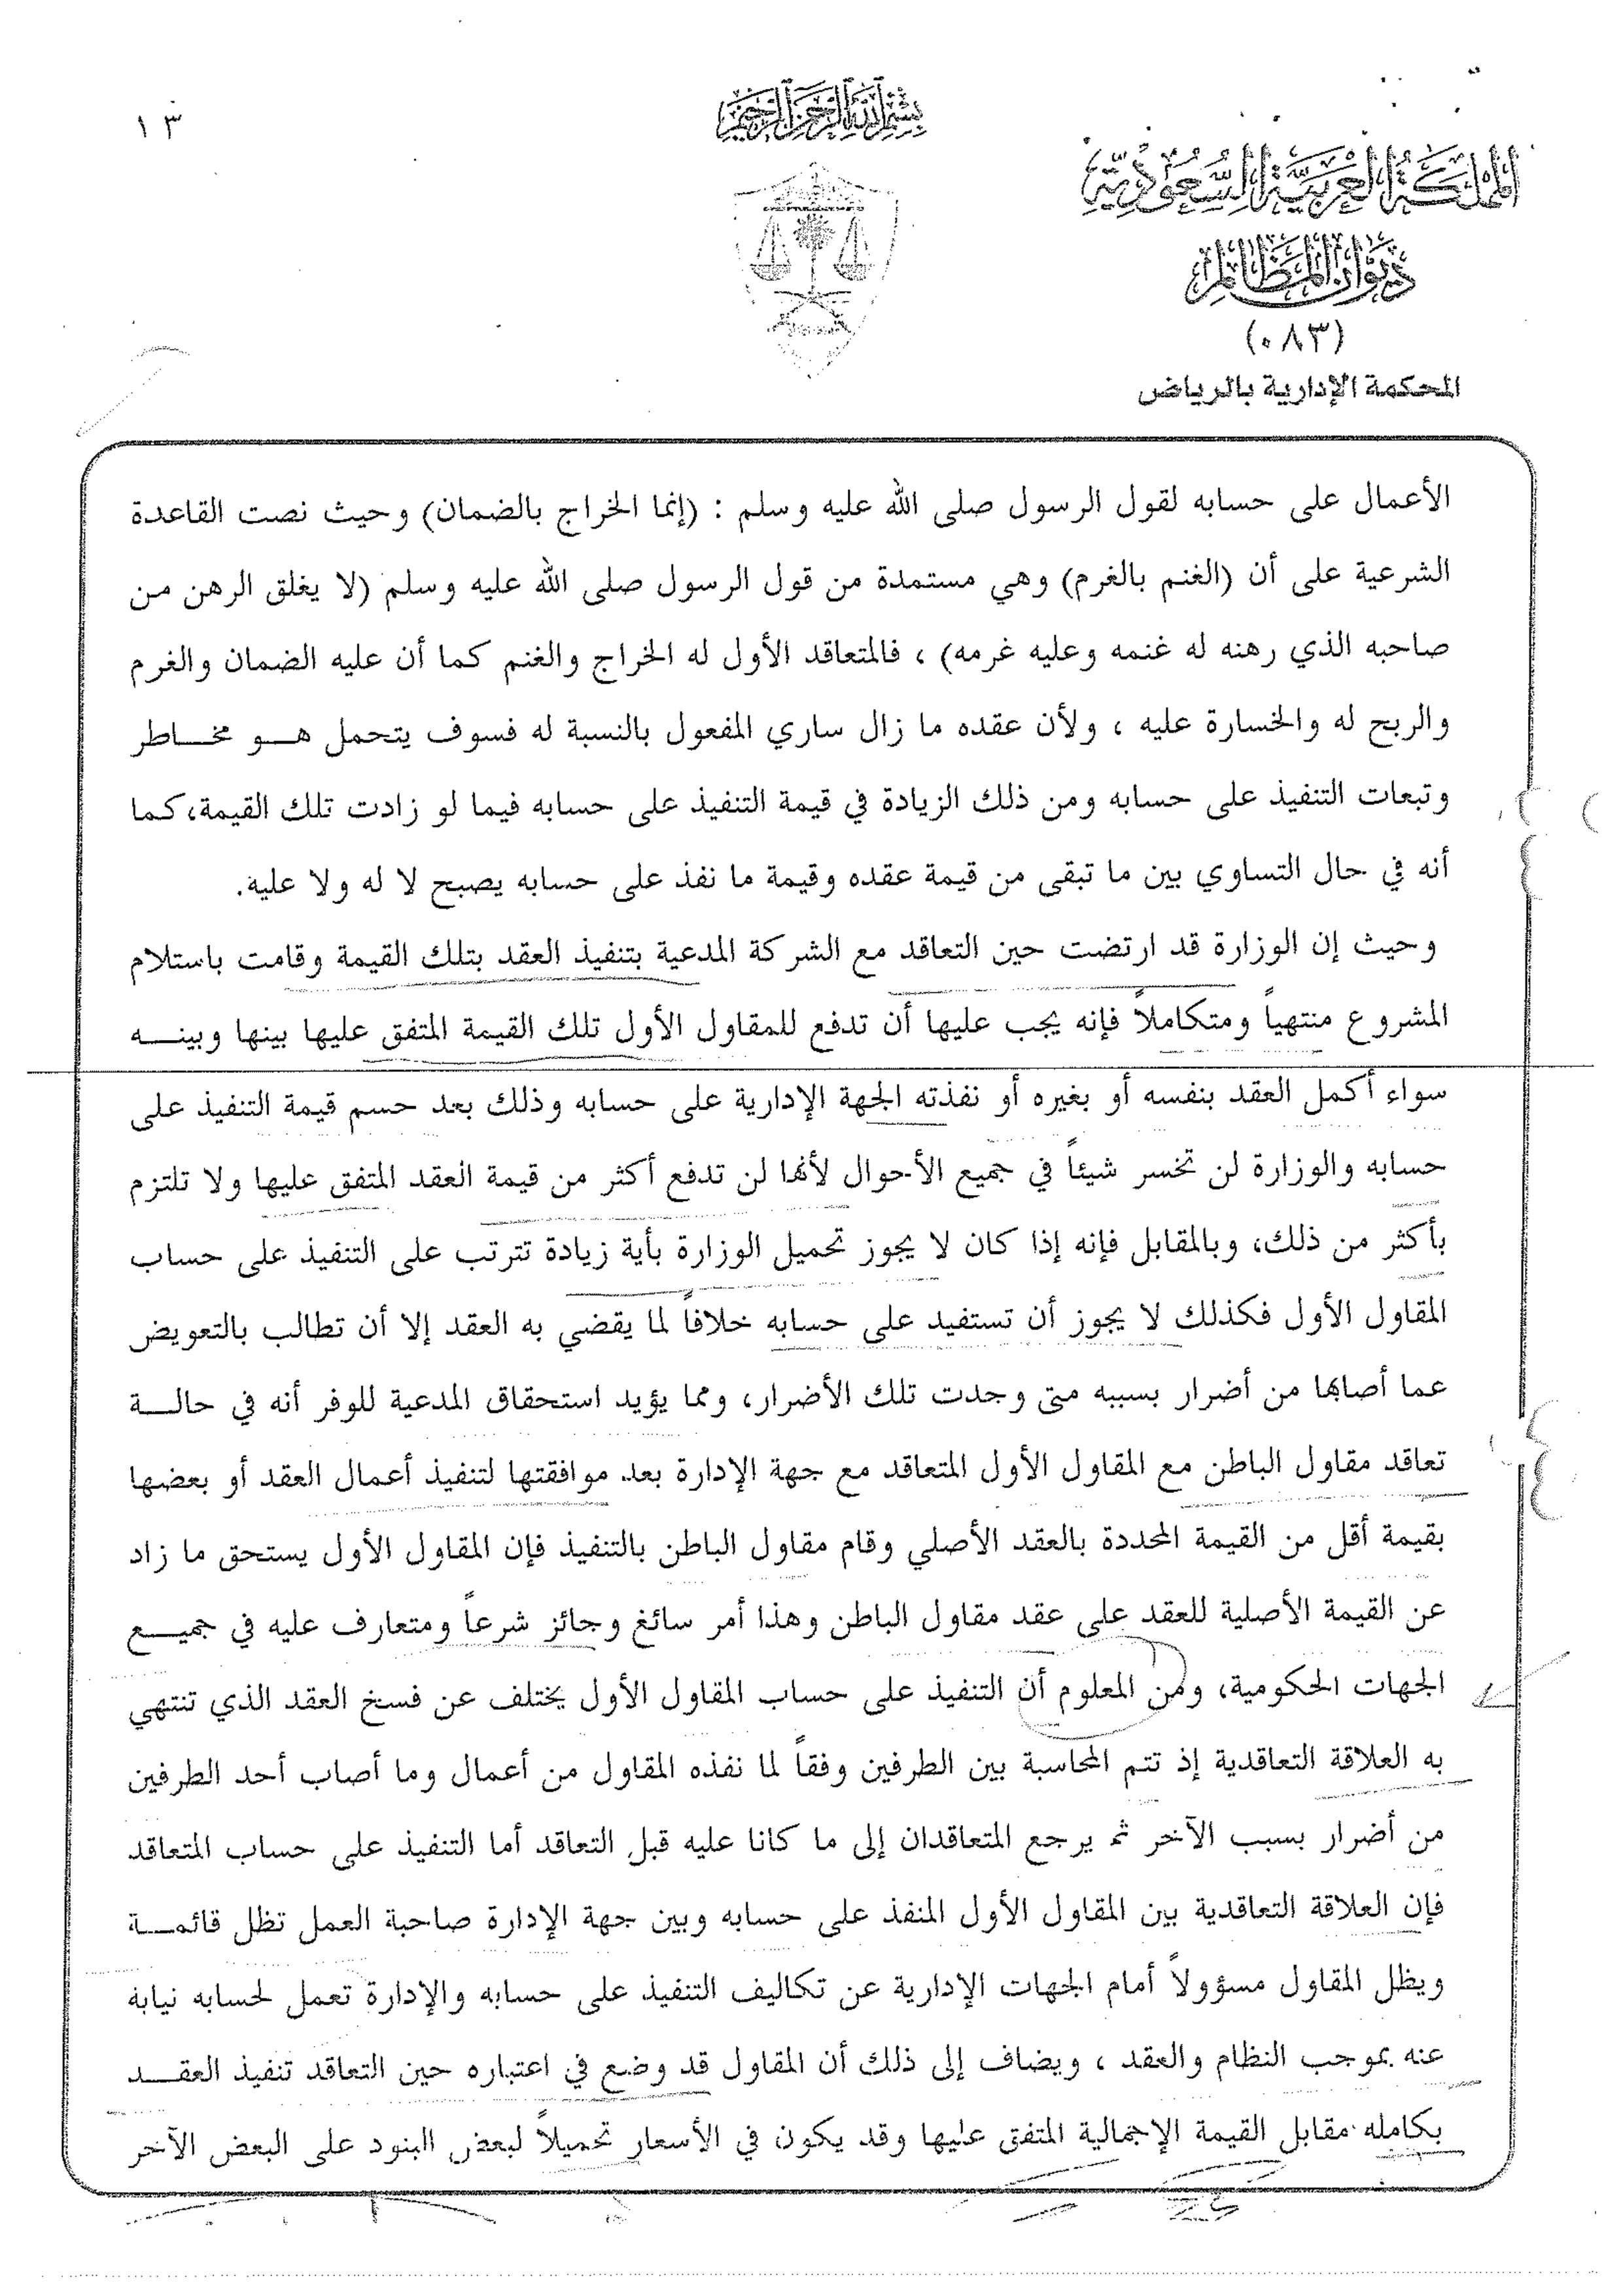 ١٣
بسم الله الرحمن الرحيم
المملكة العربية السعودية
ديوان المظالم
(٠٨٣)
المحكمة الإدارية بالرياض
الأعمال على حسابه لقول الرسول صلى الله عليه وسلم : (إنما الخراج بالضمان) وحيث نصت القاعدة
الشرعية على أن (الغنم بالغرم) وهي مستمدة من قول الرسول صلى الله عليه وسلم (لا يغلق الرهن من
صاحبه الذي رهنه له غنمه وعليه غرمه) ، فالمتعاقد الأول له الخراج والغنم كما أن عليه الضمان والغرم
والربح له والخسارة عليه ، ولأن عقده ما زال ساري المفعول بالنسبة له فسوف يتحمل هــو مخــاطر
وتبعات التنفيذ على حسابه ومن ذلك الزيادة في قيمة التنفيذ على حسابه فيما لو زادت تلك القيمة، كما
أنه في حال التساوي بين ما تبقى من قيمة عقده وقيمة ما نفذ على حسابه يصبح لا له ولا عليه.
وحيث إن الوزارة قد ارتضت حين التعاقد مع الشركة المدعية بتنفيذ العقد بتلك القيمة وقامت باستلام
المشروع منتهياً ومتكاملاً فإنه يجب عليها أن تدفع للمقاول الأول تلك القيمة المتفق عليها بينها وبينــه
سواء أكمل العقد بنفسه أو بغيره أو نفذته الجهة الإدارية على حسابه وذلك بعد حسم قيمة التنفيذ على
حسابه والوزارة لن تخسر شيئاً في جميع الأحوال لأنها لن تدفع أكثر من قيمة العقد المتفق عليها ولا تلتزم
بأكثر من ذلك، وبالمقابل فإنه إذا كان لا يجوز تحميل الوزارة بأية زيادة تترتب على التنفيذ على حساب
المقاول الأول فكذلك لا يجوز أن تستفيد على حسابه خلافاً لما يقضي به العقد إلا أن تطالب بالتعويض
عما أصابها من أضرار بسببه متى وجدت تلك الأضرار، ومما يؤيد استحقاق المدعية للوفر أنه في حالــة
تعاقد مقاول الباطن مع المقاول الأول المتعاقد مع جهة الإدارة بعد موافقتها لتنفيذ أعمال العقد أو بعضها
بقيمة أقل من القيمة المحددة بالعقد الأصلي وقام مقاول الباطن بالتنفيذ فإن المقاول الأول يستحق ما زاد
عن القيمة الأصلية للعقد على عقد مقاول الباطن وهذا أمر سائغ وجائز شرعاً ومتعارف عليه في جميــع
الجهات الحكومية، ومن المعلوم أن التنفيذ على حساب المقاول الأول يختلف عن فسخ العقد الذي تنتهي
به العلاقة التعاقدية إذ تتم المحاسبة بين الطرفين وفقاً لما نفذه المقاول من أعمال وما أصاب أحد الطرفين
من أضرار بسبب الآخر ثم يرجع المتعاقدان إلى ما كانا عليه قبل التعاقد أما التنفيذ على حساب المتعاقد
فإن العلاقة التعاقدية بين المقاول الأول المنفذ على حسابه وبين جهة الإدارة صاحبة العمل تظل قائمــة
ويظل المقاول مسؤولاً أمام الجهات الإدارية عن تكاليف التنفيذ على حسابه والإدارة تعمل لحسابه نيابة
عنه بموجب النظام والعقد ، ويضاف إلى ذلك أن المقاول قد وضع في اعتباره حين التعاقد تنفيذ العقــد
بكامله مقابل القيمة الإجمالية المتفق عليها وقد يكون في الأسعار تحميلاً لبعض البنود على البعض الآخر